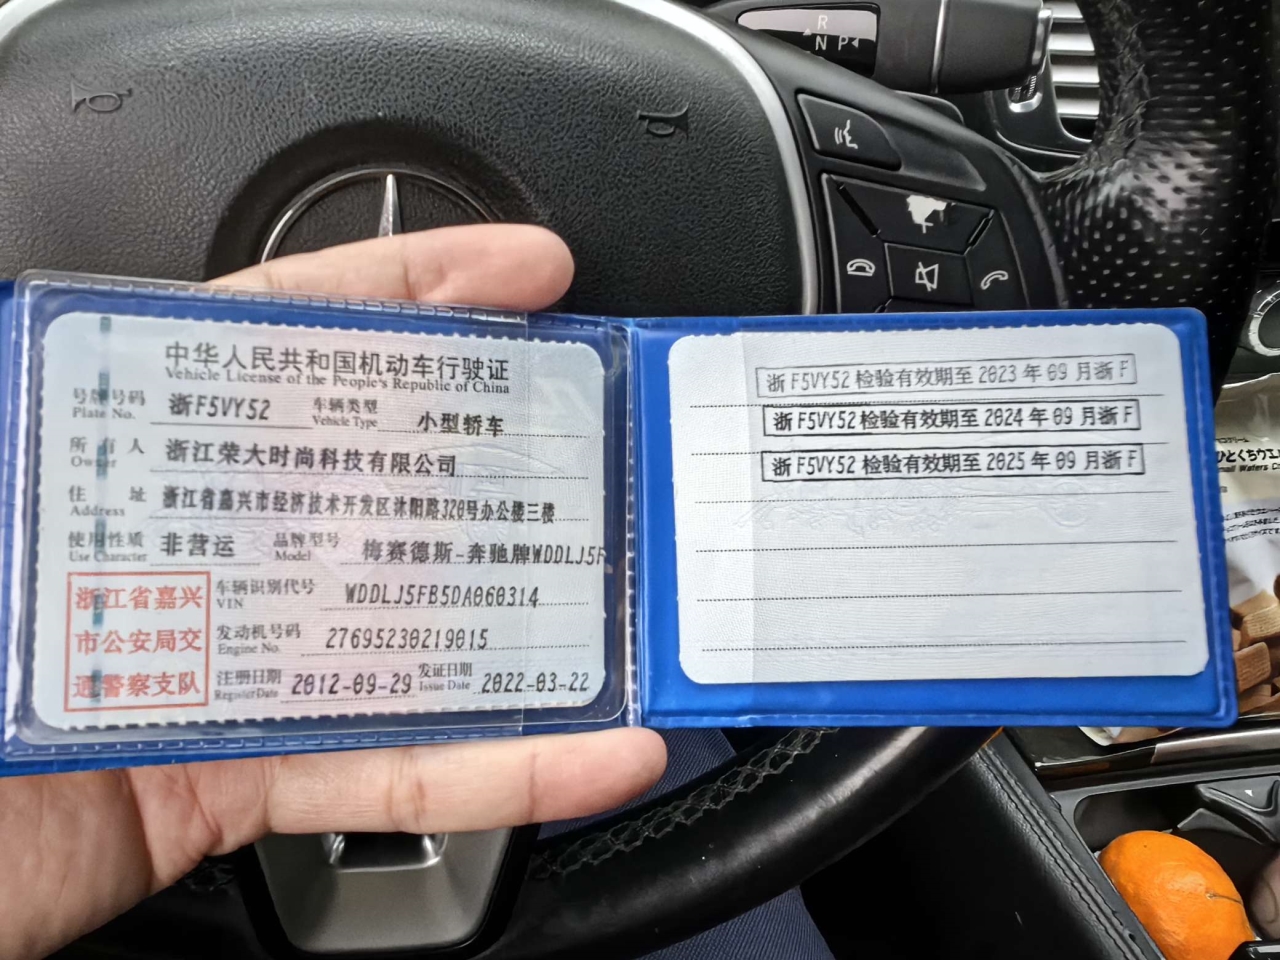 R
N P
中华人民共和国机动车行驶证
Vehicle License of the People's Republic of China
号牌号码 浙F5VY52 车辆类型 小型轿车
Plate No. Vehicle Type
所有人 浙江荣大时尚科技有限公司
Owner
住址 浙江省嘉兴市经济技术开发区沭阳路320号办公楼三楼
Address
使用性质 非营运 品牌型号 梅赛德斯-奔驰牌WDDLJ5F
Use Character Model
浙江省嘉兴
市公安局交
通警察支队
车辆识别代号 WDDLJ5FB5DA060314
VIN
发动机号码 27695230219015
Engine No.
注册日期 2012-09-29 发证日期 2022-03-22
Register Date Issue Date
浙F5VY52检验有效期至2023年09月浙F
浙F5VY52检验有效期至2024年09月浙F
浙F5VY52检验有效期至2025年09月浙F
ひとくちウエ